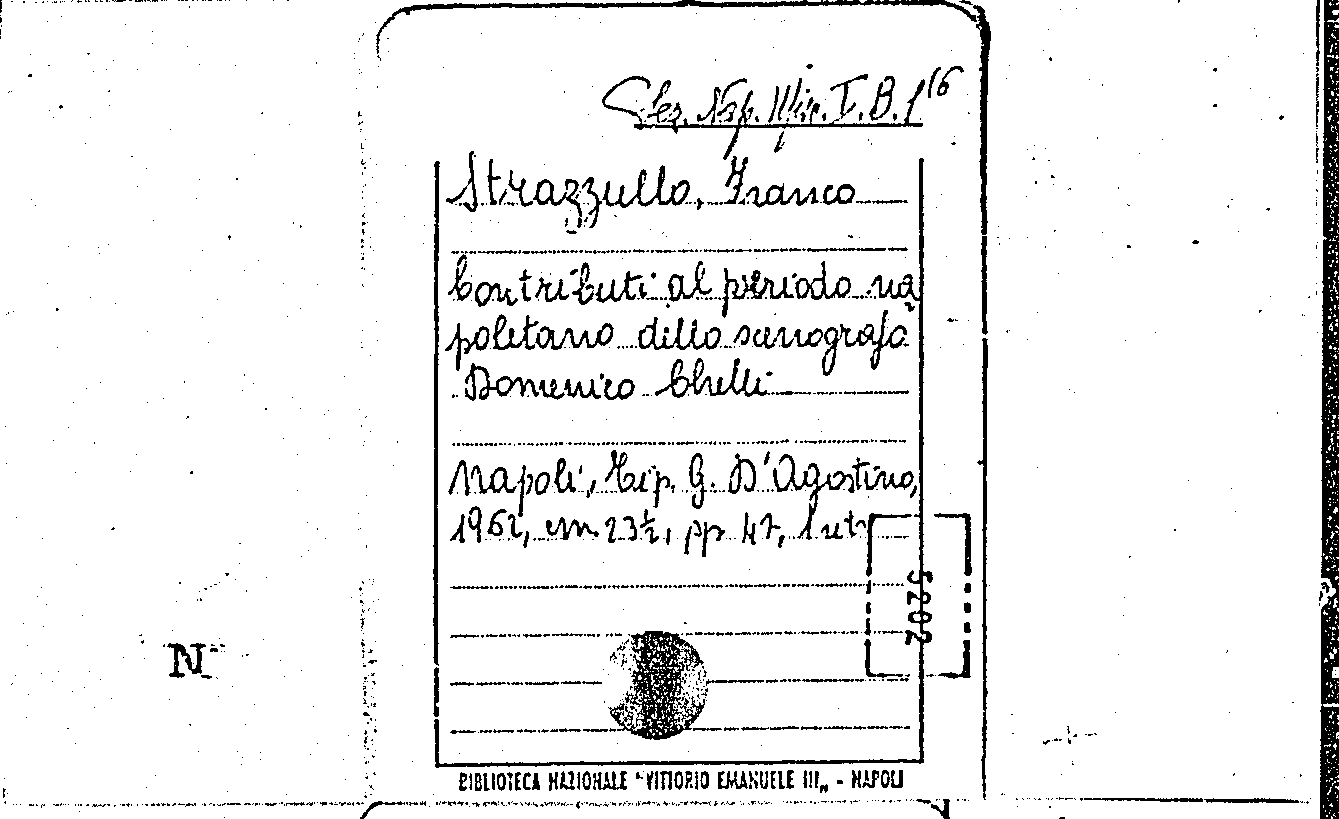 Sez. Nap. Misc. I. B. 1 16
Strazzullo, Franco
Contributi al periodo na
politano dello scenografo
Domenico Chelli
Napoli, Tip. G. D'Agostino,
1962, cm. 23½, pp 47, 1 utr
5202
N
BIBLIOTECA NAZIONALE "VITTORIO EMANUELE III„ - NAPOLI